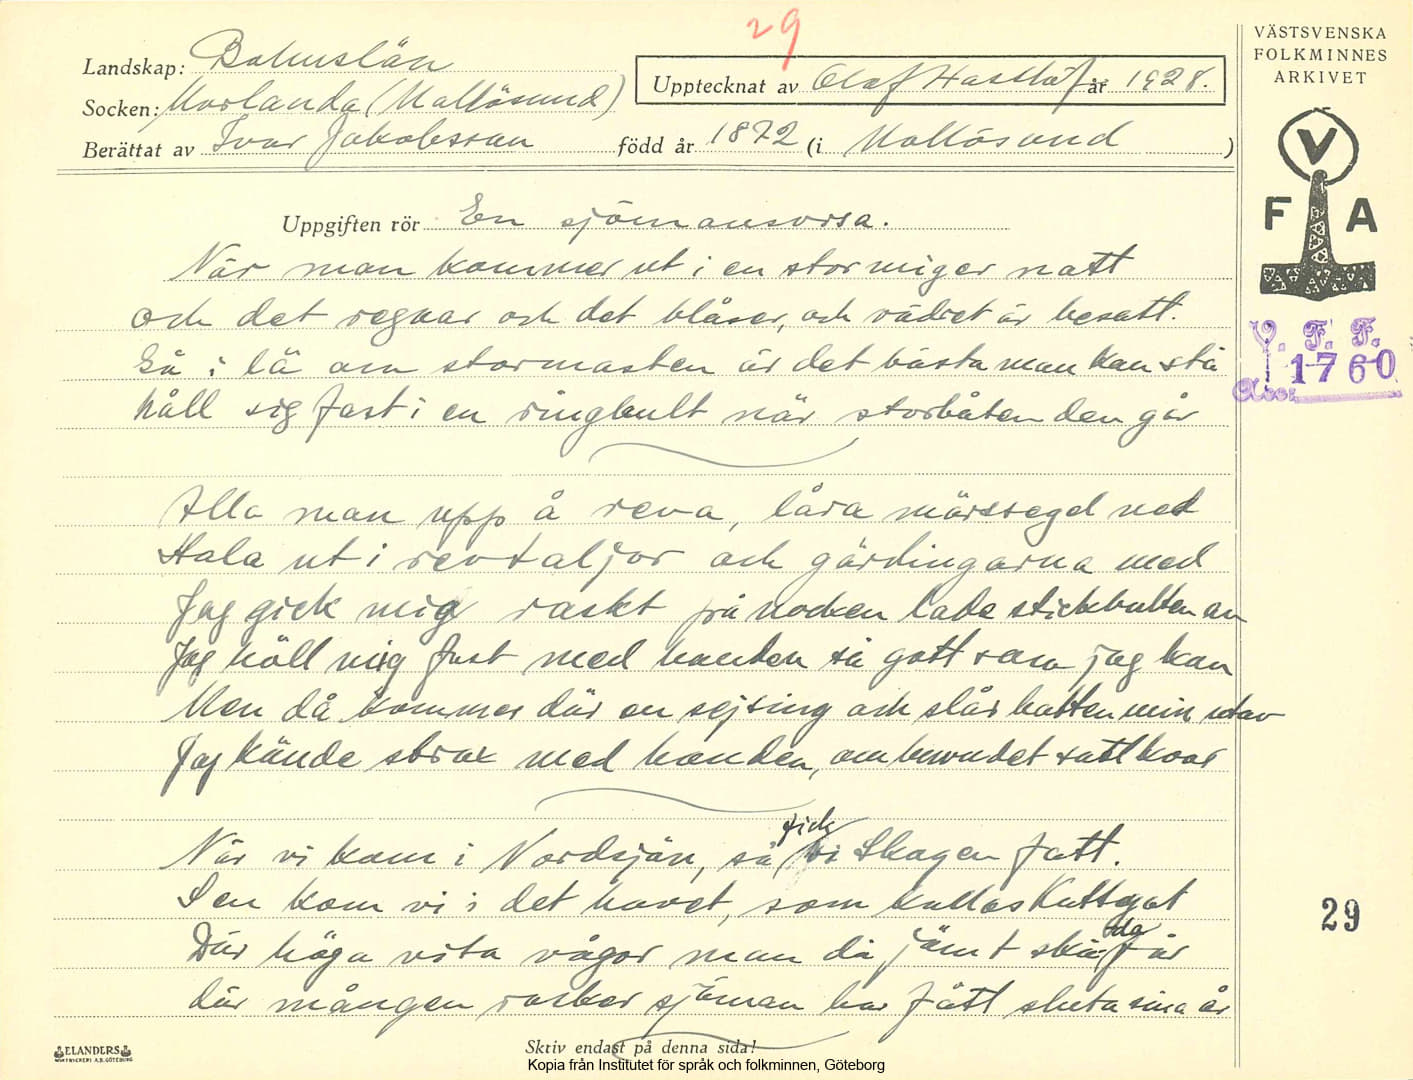 29
VÄSTSVENSKA
FOLKMINNES
ARKIVET
Landskap: Bohuslän
Upptecknat av Olof Hasslöf år 1928.
Socken: Morlanda (Mollösund)
Berättat av Ivar Jakobsson född år 1872 (i Mollösund)
V
F A
Uppgiften rör En sjömansvisa.
När man kommer ut i en stormiger natt
och det regnar och det blåser, och vädret är besatt.
Så i lä om stormasten är det bästa man kan stå
håll sig fast i en ringbult när storbåten den går
V. F. F.
Acc: 1760
Alla man upp å reva, låra märssegel ned
Hala ut i revtaljor och gårdingarna med
Jag gick mig raskt på nocken lade stickbulten an
Jag höll mig fast med handen så gott som jag kan
Men då kommer där en sejsing och slår hatten min utav
Jag kände strax med handen, om huvudet satt kvar
När vi kom i Nordsjön, så fick vi Skagen fatt.
Sen kom vi i det havet, som kallas Kattegat
Där höga vita vågor man då jämt skåda får
där mången rasker sjöman har fått sluta sina år
29
ELANDERS
BOKTRYCKERI A.B. GÖTEBORG
Skriv endast på denna sida!
Kopia från Institutet för språk och folkminnen, Göteborg